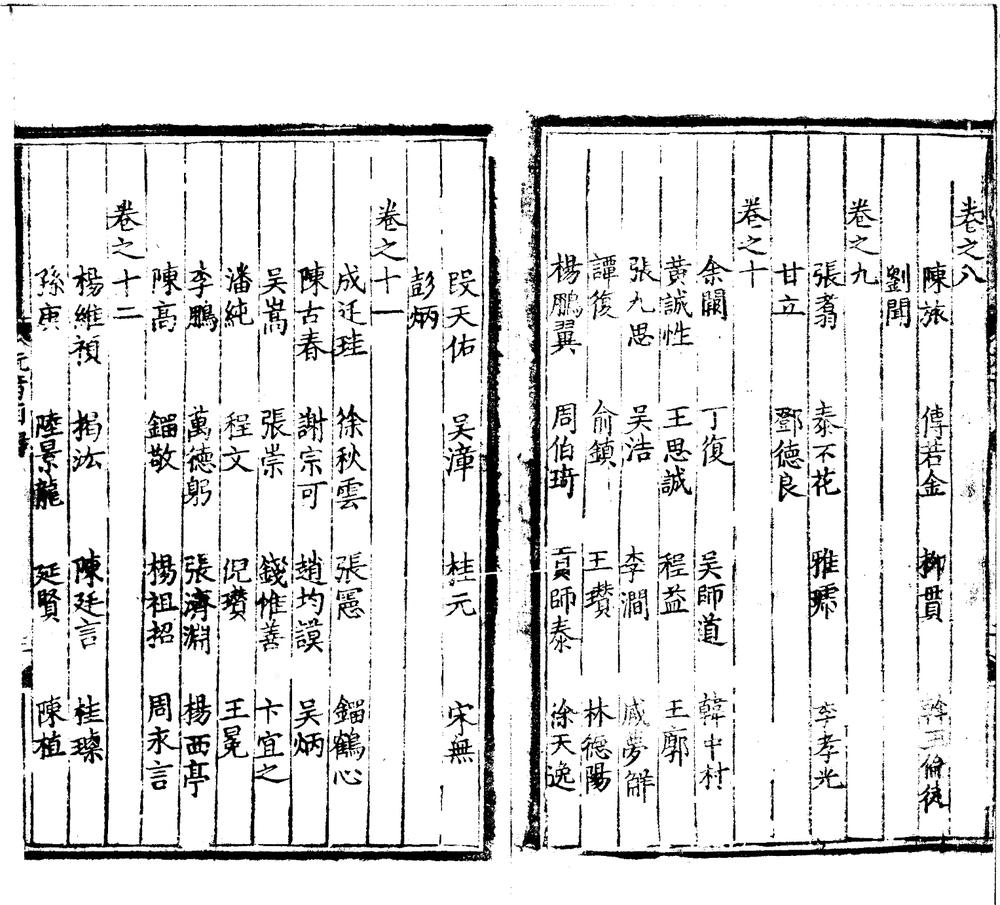 卷之八
陳旅 傅若金 柳貫 斡玉倫徒
劉聞
卷之九
張翥 泰不花 雅琥 李孝光
甘立 鄧德良
卷之十
余闕 丁復 吴師道 韓中村
黄誠性 王思誠 程益 王廓
張九思 吴浩 李澗 咸夢觧
譚復 俞鎮 王瓚 林德陽
楊鵬翼 周伯琦 貢師泰 徐天逸
段天佑 吴漳 桂元 宋無
彭炳
卷之十一
成廷珪 徐秋雲 張憲 鎦鶴心
陳古春 謝宗可 趙均謨 吴炳
吴嵩 張崇 錢惟善 卞宜之
潘純 程文 倪瓚 王冕
李鵬 萬德躬 張濟淵 楊西亭
陳髙 鎦敬 楊祖招 周永言
卷之十二
楊維禎 揭汯 陳廷言 桂瑮
孫庚 陸景龍 延賢 陳植